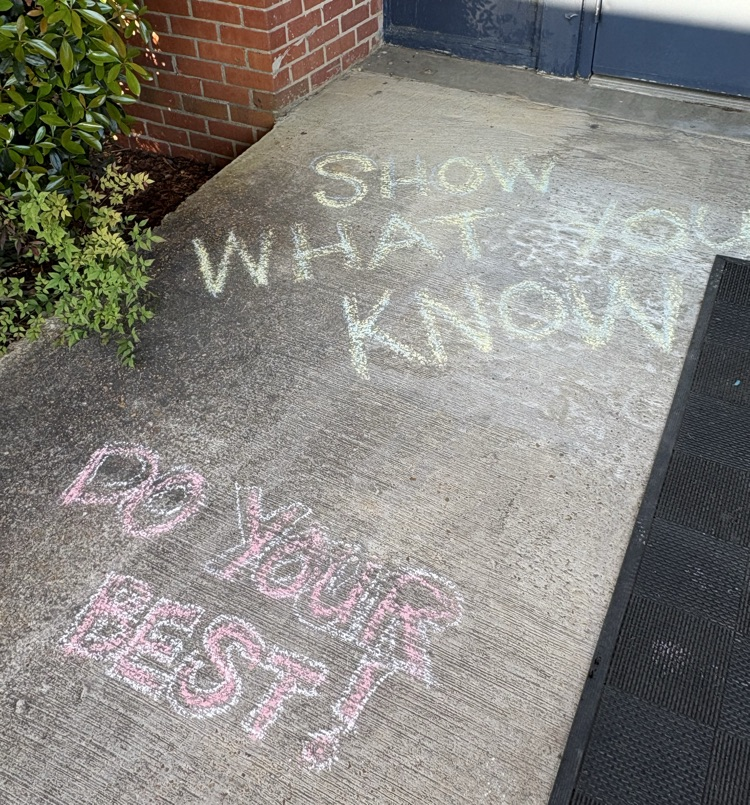 SHOW
WHAT YOU
KNOW
DO YOUR
BEST!